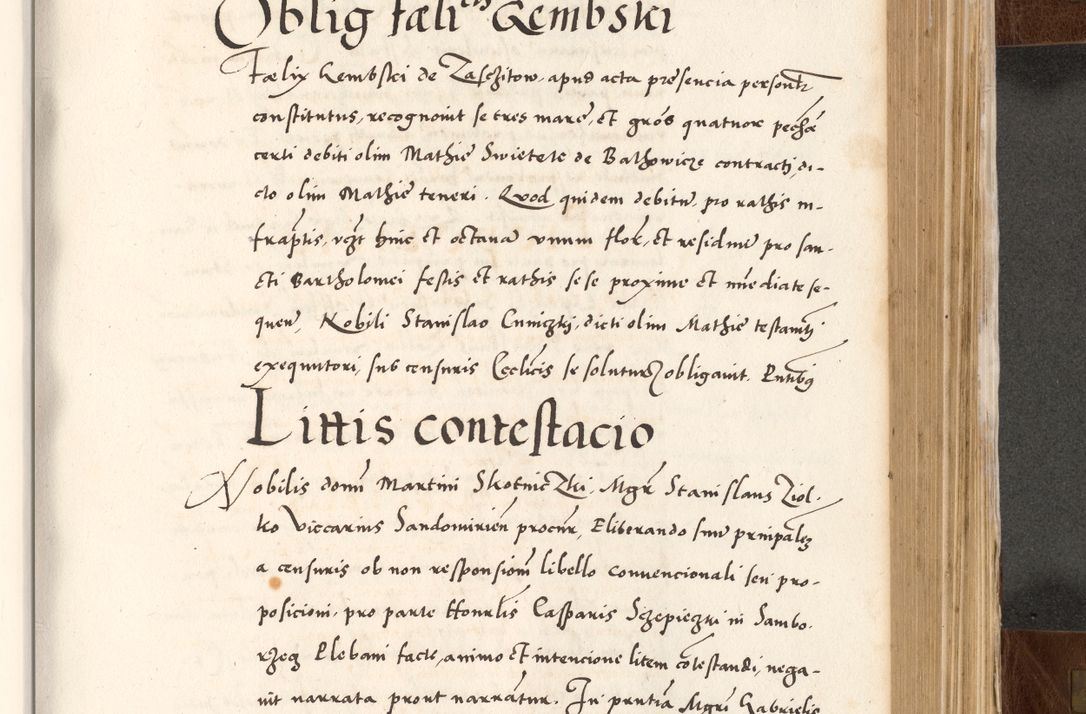 Oblig fæli^cis Gembski
Fælix Gembski de Zaschitow, apud acta presencia personlr
constitutus, recognouit se tres marc, et gros quatuor pech
certi debiti olim Mathie Swietek de Bathowicze contracti, di-
cto olim Mathie teneri. Quod quidem debitu, pro rathis in-
fraptis, vczt hinc et octaua vnum flor, et residuu pro san-
cti Bartholomei festis et rathis sese proxime et imediate se-
quen, Nobili Stanislao dicti olim Mathie testamti
exequutori, sub censuris Ecclicis se soluturu obligauit. Pntibq
Littis contestacio
Nobilis domi Martini Skotniczki, Mgr Stanislaus Ziol-
ko Viccarius Sandomirien procur, Eliberando suu prnpalez
a censuris ob non responsione libello conuencionali seu pro-
posicioni, pro parte Honrlis Casparis Sczepieczki in Sambo-
rzecz Plebani facte, animo et intencione litem cotestandi, nega-
uit narrata prout narratur. In pntia Mgri Gabrielis